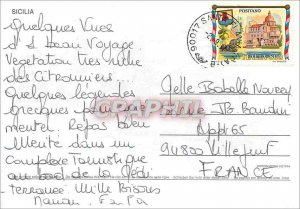 SICILIA
Quelques Vues
d'1 beau Voyage
Vegetation très riche
des Citronniers
Quelques légendes
Grecques pour le
mental. Repas bien
Mérité dans un
Complexe Touristique
au bord de la Médi-
-terranée. Mille Bisous
Maman. Pa Pa
POSITANO
ITALIA
90017 SANT
Melle Isabelle
Rue JB Baudin
Appt 65
94800 Villejuif
FRANCE